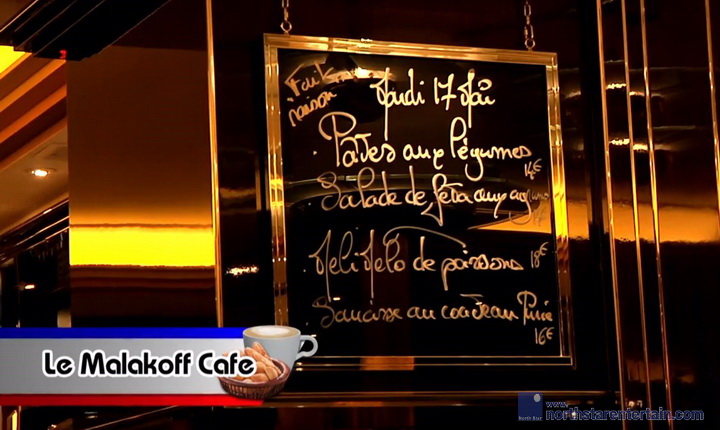 Fait
maison
Jeudi 17 Mai
Pâtes aux légumes
14€
Salade de fêta aux
Méli Mélo de poissons 18€
Saucisse au couteau Purée
16€
Le Malakoff Cafe
North Star
www.
northstarentertain.com